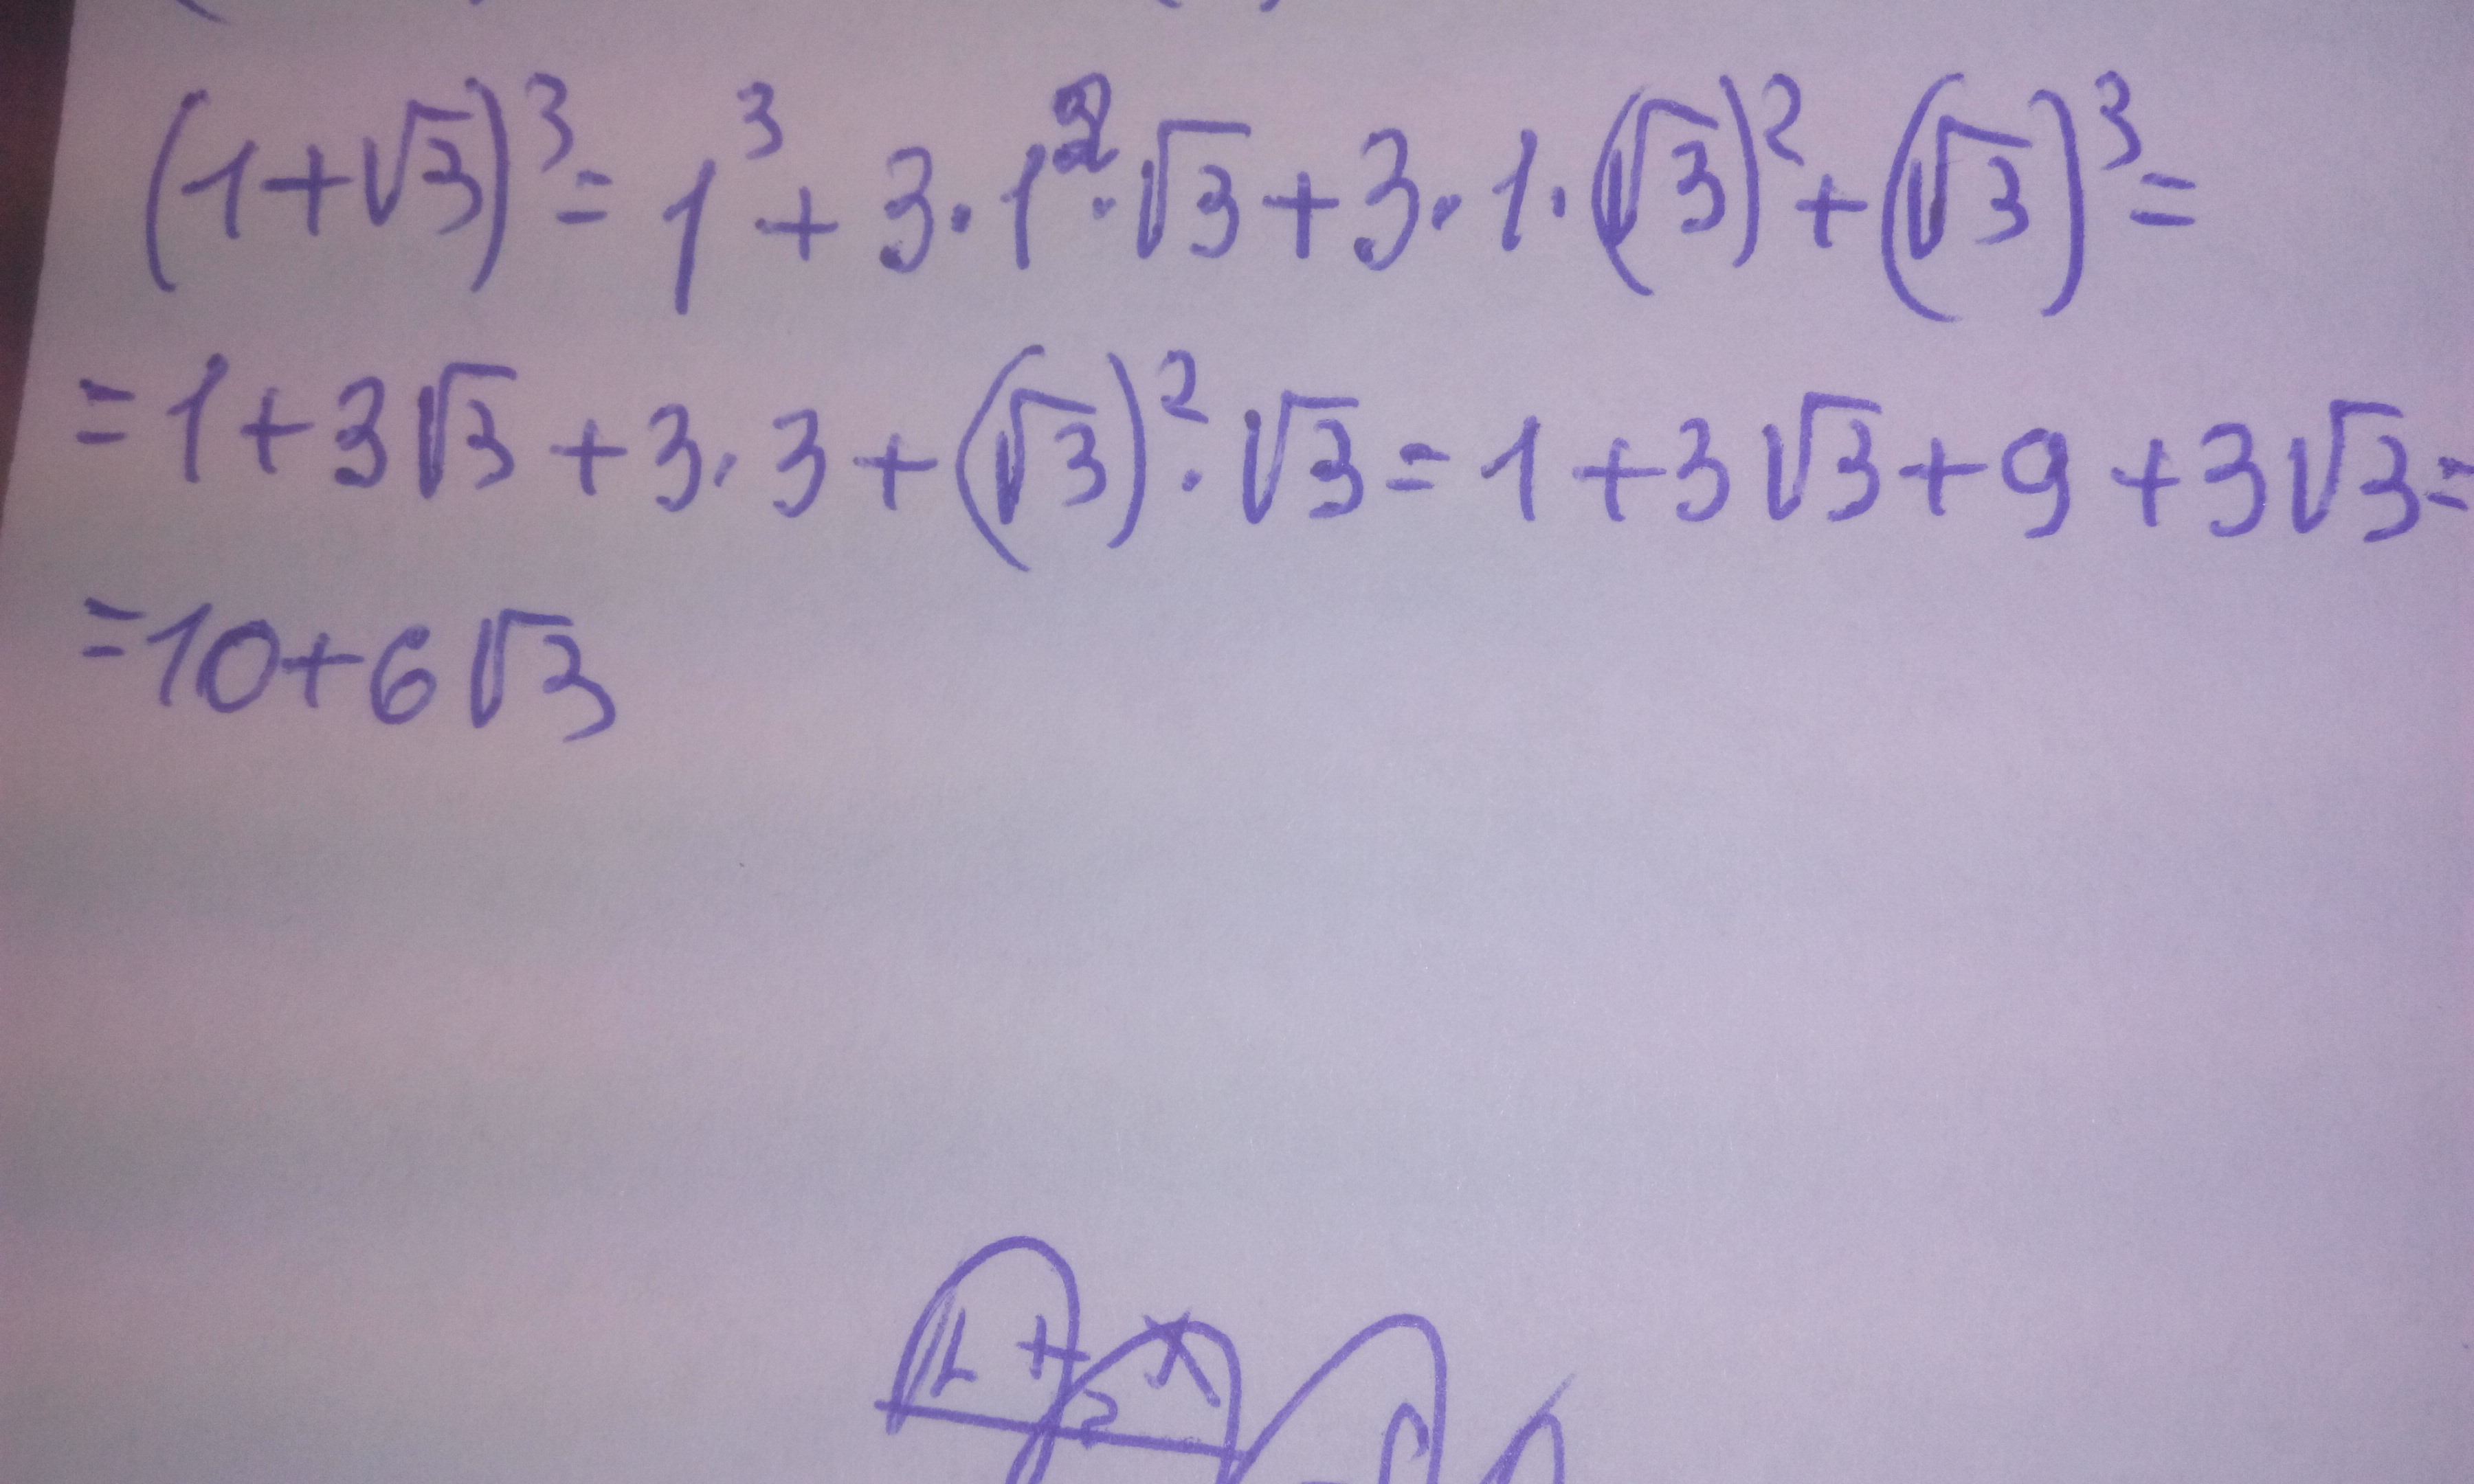 (1+√3)³= 1³ + 3·1²·√3+3·1·(√3)²+(√3)³=
=1+3√3+3·3+(√3)²·√3=1+3√3+9+3√3=
=10+6√3